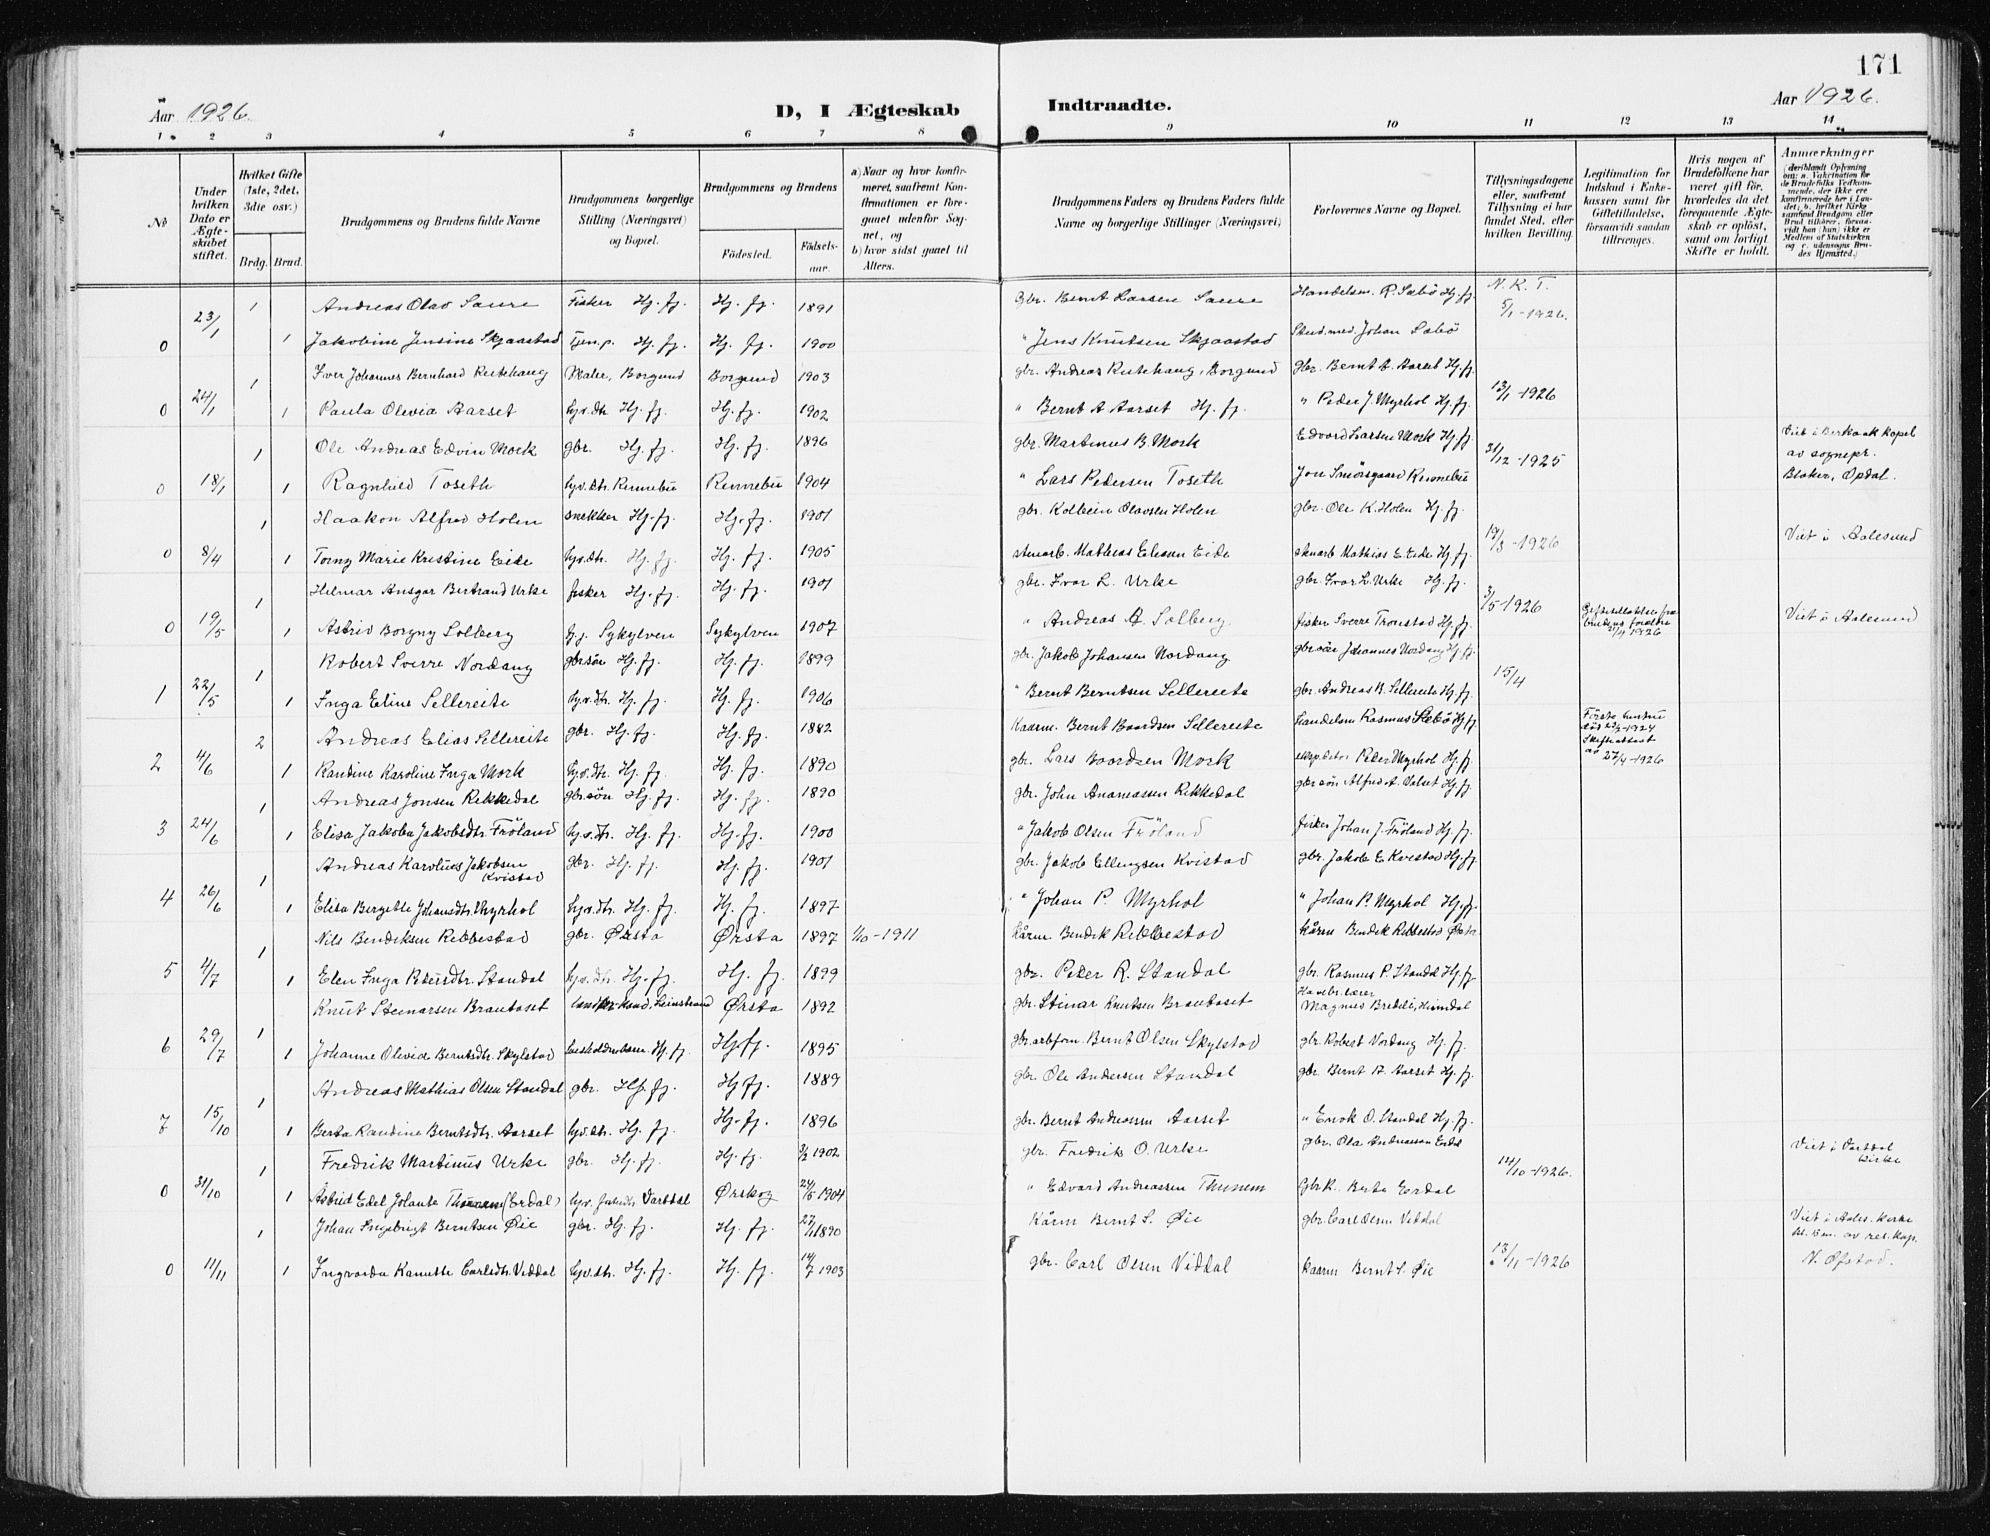 171
Aar 1926.
D, I Ægteskab Indtraadte.
Aar 1926.
1 2 3 4 5 6 7 8 9 10 11 12 13 14
No
Under hvilken Dato er Ægteskabet stiftet.
Hvilket Gifte (1ste, 2det, 3die osv.)
Brdg. Brud.
Brudgommens og Brudens fulde Navne
Brudgommens borgerlige Stilling (Næringsvei) og Bopæl.
Brudgommens og Brudens
Fødested.
Fødselsaar.
a) Naar og hvor konfirmeret, saafremt Konfirmationen er foregaaet udenfor Sognet, og
b) hvor sidst gaaet til Alters.
Brudgommens Faders og Brudens Faders fulde Navne og borgerlige Stillinger (Næringsvei)
Forlovernes Navne og Bopæl.
Tillysningsdagene eller, saafremt Tillysning ei har fundet Sted, efter hvilken Bevilling.
Legitimation for Indskud i Enkekassen samt for Giftetilladelse, forsaavidt saadan tiltrænges.
Hvis nogen af Brudefolkene har været gift før, hvorledes da det foregaaende Ægteskab er opløst, samt om lovligt Skifte er holdt.
Anmærkninger
(deriblandt Oplysning om: a. Vakcination for de Brudefolks Vedkommende, der ikke ere konfirmerede her i Landet; b. hvilket Kirkesamfund Brudgom eller Brud tilhører, forsaavidt han (hun) ikke er Medlem af Statskirken og c. udensogns Brudes Hjemsted.)
1 Andreas Olav Saure Fisker Hj. fj. Hj. fj. 1891 Gbr. Bernt Larsen Saure Handelsm. R. Sæbö Hj. fj. N. K. T. 5/1-1926.
0 23/1 1 Jakobine Jensine Skjaastad Tjen.p. Hj. fj. Hj. fj. 1900 " Jens Knutsen Skjaastad Stud. med. Johan Sæbö
1 Iver Johannes Bernhard Rutehaug Maler, Borgund Borgund 1903 gbr. Andreas Rutehaug, Borgund Gbr. Bernt A. Aarset Hj. fj.
0 24/1 1 Paula Olevia Aarset hv.dtr. Hj. fj. Hj. fj. 1902 " Bernt A Aarset Hj. fj. " Peder J. Myrhol Hj. fj. 13/1-1926
1 Ole Andreas Edvin Mork gbr. Hj. fj. Hj. fj. 1896 gbr. Martinus B. Mork Edvard Larsen Mork Hj. fj. Viet i Berkaak kapel
0 18/1 1 Ragnhild Toseth hv.dtr. Rennebu Rennebu 1904 " Lars Pedersen Toseth Jon Smörsgaard Rennebu 31/12-1925 av sognepr. Bloker, Opdal.
1 Haakon Alfred Holen snekker Hj. fj. Hj. fj. 1901 gbr. Kolbein Olavsen Holen gbr. Ole K. Holen Hj. fj.
0 8/4 1 Torny Marie Kristine Eide hv.dtr. Hj. fj. Hj. fj. 1905 stenarb. Mathias Eide stenarb. Mathias E. Eide Hj. fj. /3-1926 Viet i Aalesund
1 Hilmar Ansgar Bertrand Urke fisker Hj. fj. Hj. fj. 1901 gbr. Ivar L. Urke gbr. Ivar L. Urke Hj. fj.
0 19/5 1 Astrid Borgny Solberg Sykylven Sykylven 1907 " Andreas A. Solberg fisker Sverre Tronstad Hj. fj. 3/5-1926 Giftetilladelse fra brudens foreldre 21/4 1926 Viet i Aalesund
1 Robert Sverre Nordang gbr.sön Hj. fj. Hj. fj. 1899 gbr. Jakob Johansen Nordang gbr.sön Johannes Nordang Hj. fj.
1 22/5 1 Inga Eline Sellereite hv.dtr. Hj. fj. Hj. fj. 1906 " Bernt Berntsen Sellereite gbr. Andreas B. Sellereite Hj. fj. 15/4
2 Andreas Elias Sellereite gbr. Hj. fj. Hj. fj. 1882 Kaarm. Bernt Baardsen Sellereite handelsm Rasmus Sæbö Hj fj Förste hustru död 1924
2 4/6 1 Randine Karoline Inga Mork hv.dtr. Hj. fj. Hj. fj. 1890 gbr. Lars Baardsen Mork ekspeditör Peter Myrhol Hj. fj. Skifteattest av 27/4-1926
1 Andreas Jonsen Rekkedal gbr.sön Hj. fj. Hj. fj. 1890 gbr. John Andreassen Rekkedal gbr.sön Alfred A. Aarset Hj. fj.
3 24/6 1 Elisa Jakoba Jakobsdtr. Fröland hv.dtr. Hj. fj. Hj. fj. 1900 " Jakob Olsen Fröland fisker Johan J. Fröland Hj. fj.
1 Andreas Karolius Jakobsen Kvistad gbr. Hj. fj. Hj. fj. 1901 gbr. Jakob Ellingsen Kvistad gbr. Jakob E Kvistad Hj. fj.
4 26/6 1 Elisa Bergette Johansdtr. Myrhol hv.dtr. Hj. fj. Hj. fj. 1897 " Johan P. Myrhol " Johan P. Myrhol Hj. fj.
1 Nils Bendiksen Rebbestad gbr. Ørsta Ørsta 1897 1/10-1911 kårm. Bendik Rebbestad kårm Bendik Rebbestad Ørsta
5 4/7 1 Elen Inga Petersdtr. Standal hv.dtr. Hj. fj. Hj. fj. 1899 gbr. Peter R. Standal gbr. Rasmus P. Standal Hj. fj.
1 Knut Steinarsen Brautaset Leinstrand Ørsta 1892 gbr. Steinar Knutsen Brautaset Havebr.lærer Magnus Bredeli, Heimdal
6 29/7 1 Johanne Olivia Berntsdtr. Skylstad Hj. fj. Hj. fj. 1895 gbr. arbform. Bernt Olsen Skylstad gbr. Robert Nordang Hj. fj.
1 Andreas Mathias Olsen Standal gbr. Hj. fj. Hj. fj. 1889 gbr. Ole Andersen Standal gbr. Bernt A. Aarset Hj. fj.
7 15/10 1 Berta Randine Berntsdtr. Aarset hv.dtr. Hj. fj. Hj. fj. 1896 gbr. Bernt Andreassen Aarset " Enok O. Standal Hj. fj.
1 Fredrik Martinus Urke gbr. Hj. fj. Hj. fj. 3/2 1902 gbr. Fredrik O. Urke gbr. Ola Andreassen Erdal Viet i Vartdal kirke
0 31/10 1 Astrid Edel Jolante Thunem (Erdal) hv. Vartdal Ørskog 24/5 1904 " Edvard Andreassen Thunem Gbrk. Berte Erdal 14/10-1926.
1 Johan Ingebrigt Berntsen Øie gbr. Hj. fj. Hj. fj. 27/11 1890 Kårm Bernt S. Øie gbr. Carl Olsen Viddal Viet i Aales. kirke
0 11/11 1 Ingvarda Kanutte Carlsdtr. Viddal hv.dtr. Hj. fj. Hj. fj. 14/7 1903 gbr. Carl Olsen Viddal kaarm Bernt S. Øie 13/11-1926 av res. kap. N. Øfstad.